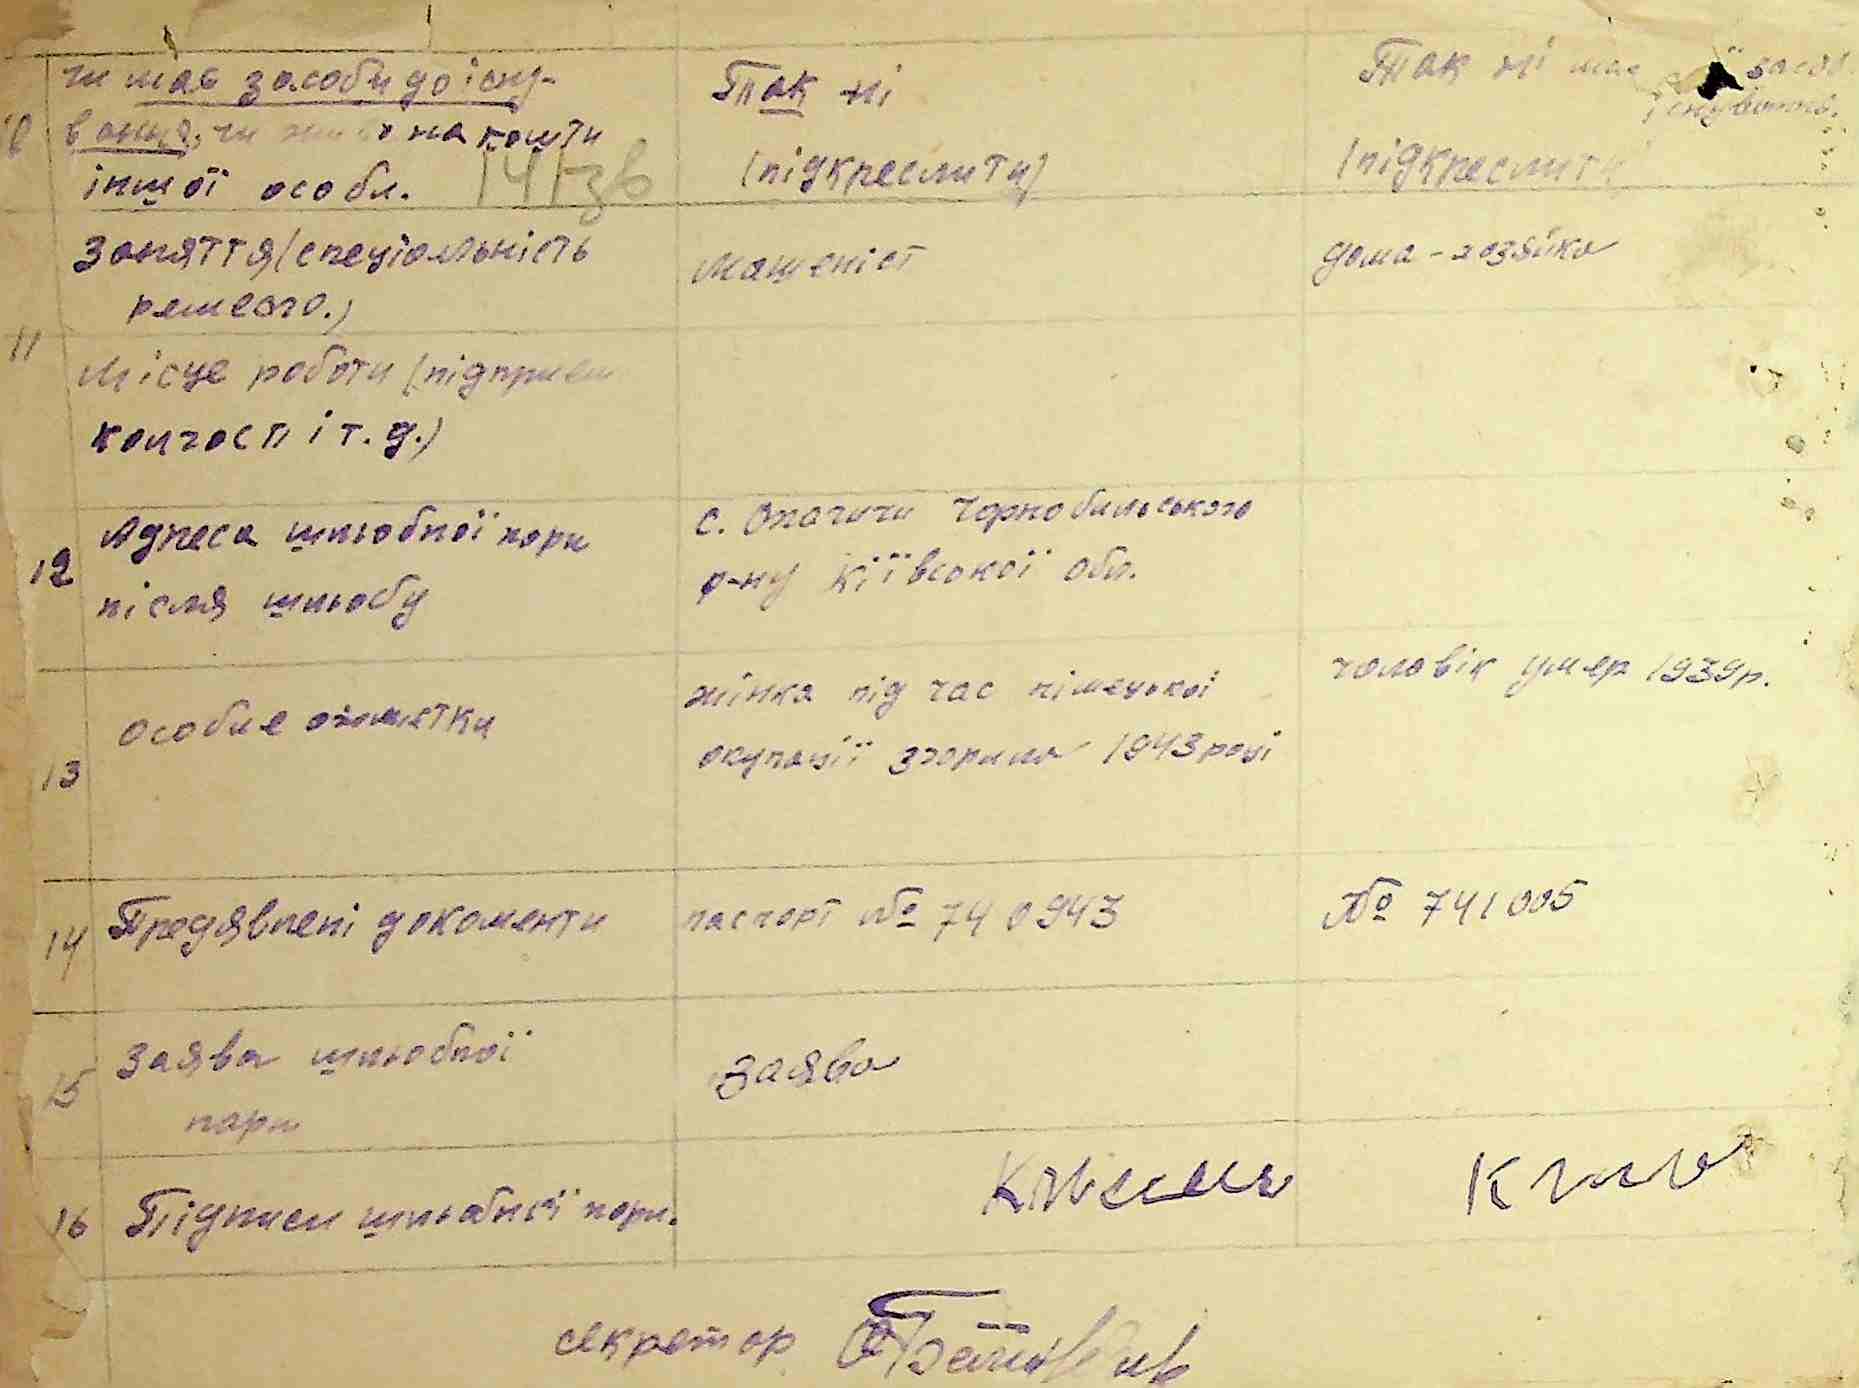 чи має засоби до існу-
вання, чи живе на кошти
іншої особи.
Так ні
(підкреслити)
Так ні має засоб.
існування.
(підкреслити)
10
141зв
11
Заняття (спеціальність
ремесло.)
Машеніст
дома-хозяйка
Місце роботи (підприєм
колгосп і т. д.)
12
Адреса шлюбної пари
після шлюбу
с. Опачичи Чорнобильського
р-ну Кіївської обл.
13
Особие отметки
жінка під час німецької
окупації згоріла 1943 році
чоловік умер 1939 р.
14
Предявлені документи
паспорт № 740943
№ 741005
15
Заява шлюбної
пари
Заява
16
Підписи шлюбної пари.
секретар